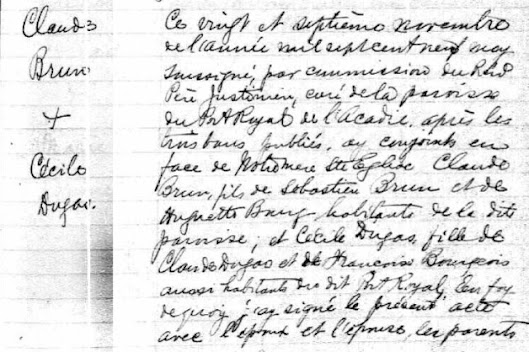 Claude
Brun
+
Cécile
Dugas.
Ce vingt et septième novembre
de l'année mil sept cent neuf moy
soussigné, par commission du Rèvd
Père Justinien, curé de la paroisse
du Port Royal de l'Acadie, après les
trois bans publiés, ay conjoints en
face de Notre mere Ste Eglise Claude
Brun, fils de Sébastien Brun et de
Huguette Bourg, habitants de la dite
paroisse; et Cécile Dugas, fille de
Claude Dugas et de Francoise Bourgeois
aussi habitants du dit Port Royal, En foy
de quoy j'ay signé le présent acte
avec l'époux et l'épouse, les parents